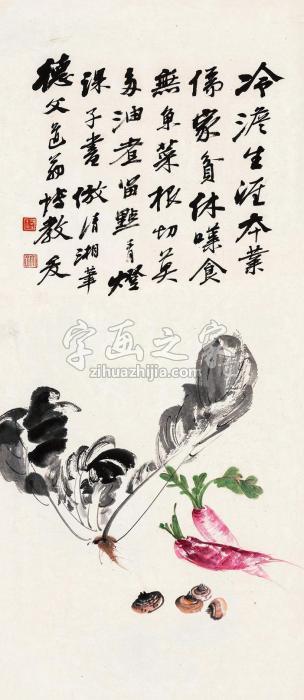 冷澹生涯本業
儒家貧休嘆食
無魚菜根切莫
多油煮留點青燈
課子書 倣清湘筆
德父道翁博教 爰
字画之家
zihuazhijia.com